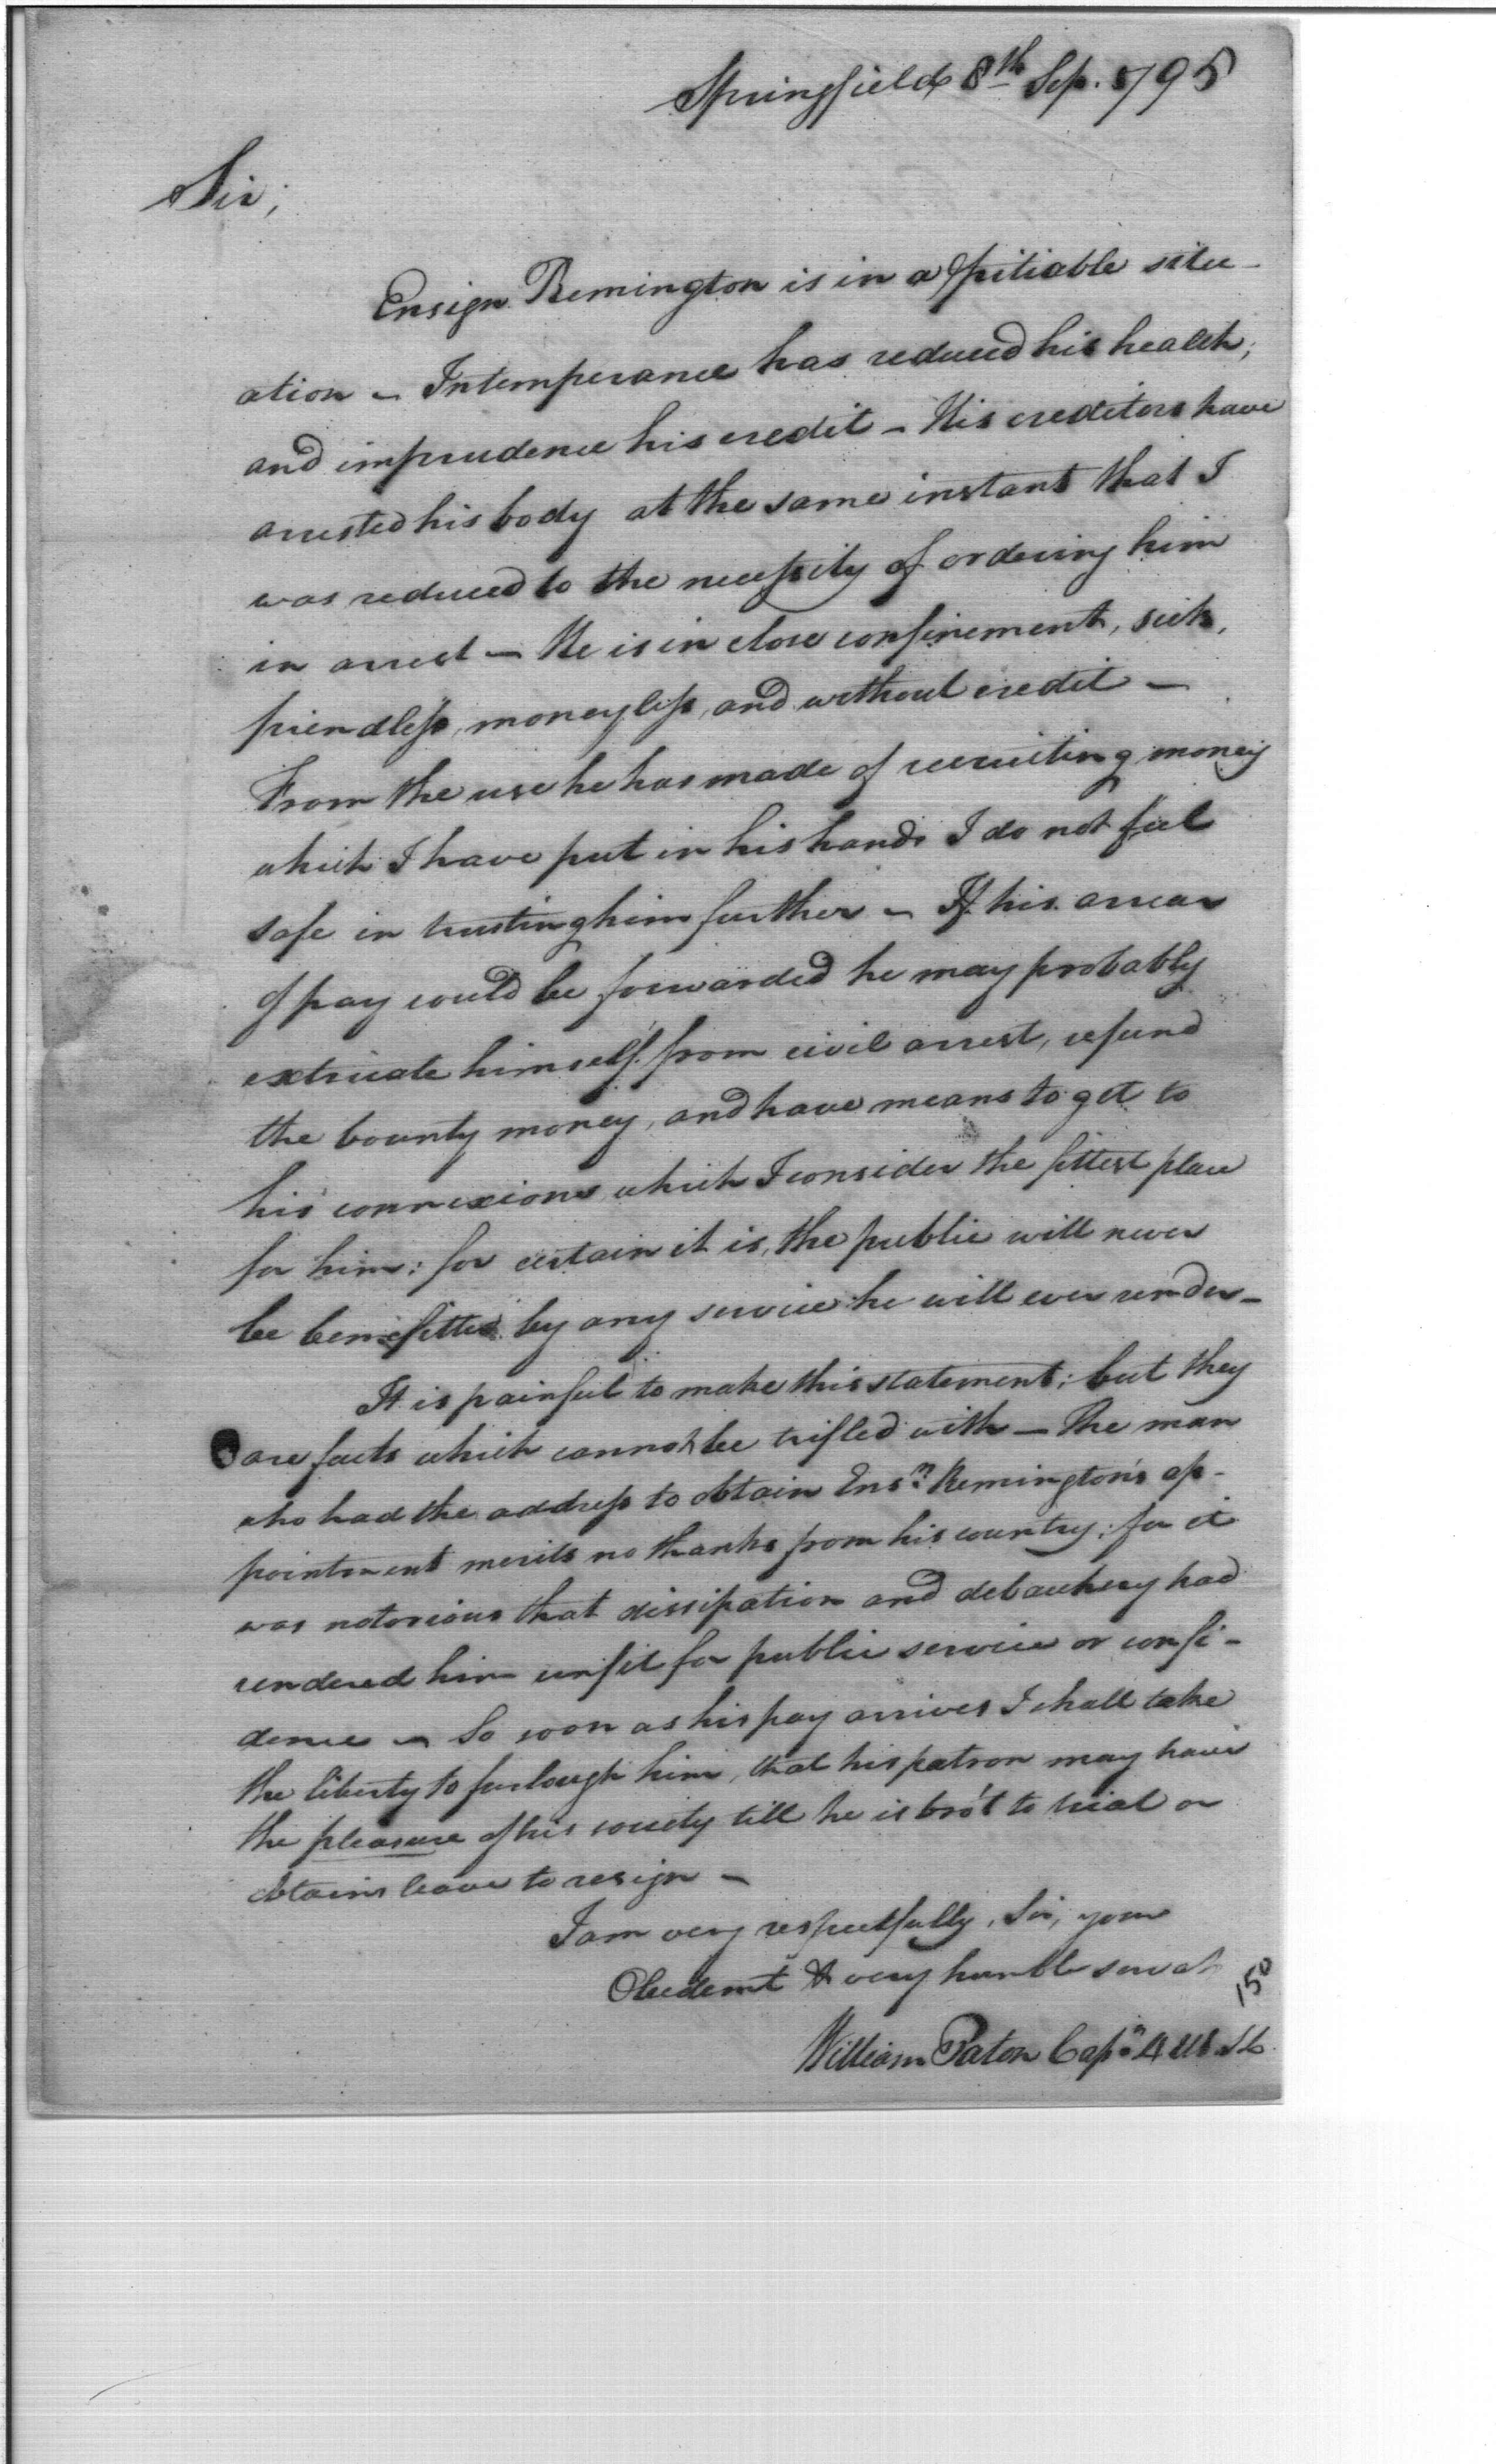 Springfield 8th Sep. 1795
Sir;
Ensign Remington is in a pitiable situ-
ation – Intemperance has reduced his health;
and imprudence his credit – His creditors have
arrested his body at the same instant that I
was reduced to the necessity of ordering him
in arrest – He is in close confinement, sick,
friendless, moneyless, and without credit –
From the use he has made of recruiting money
which I have put in his hands I do not feel
safe in trusting him further – If his arrear
of pay could be forwarded he may probably
extricate himself from civil arrest, refund
the bounty money, and have means to get to
his connexions, which I consider the fittest place
for him: for certain it is, the public will never
be benefitted by any service he will ever render –
It is painful to make this statement; but they
are facts which cannot be trifled with – The man
who had the address to obtain Ensn. Remington's ap-
pointment merits no thanks from his country; for it
was notorious that dissipation and debauchery had
rendered him unfit for public service or confi-
dence – So soon as his pay arrives I shall take
the liberty to furlough him, that his patron may have
the pleasure of his society till he is bro't to trial or
obtains leave to resign –
I am very respectfully, Sir, your
Obedient & very humble servat
150
William Eaton Capn. 4 US SL